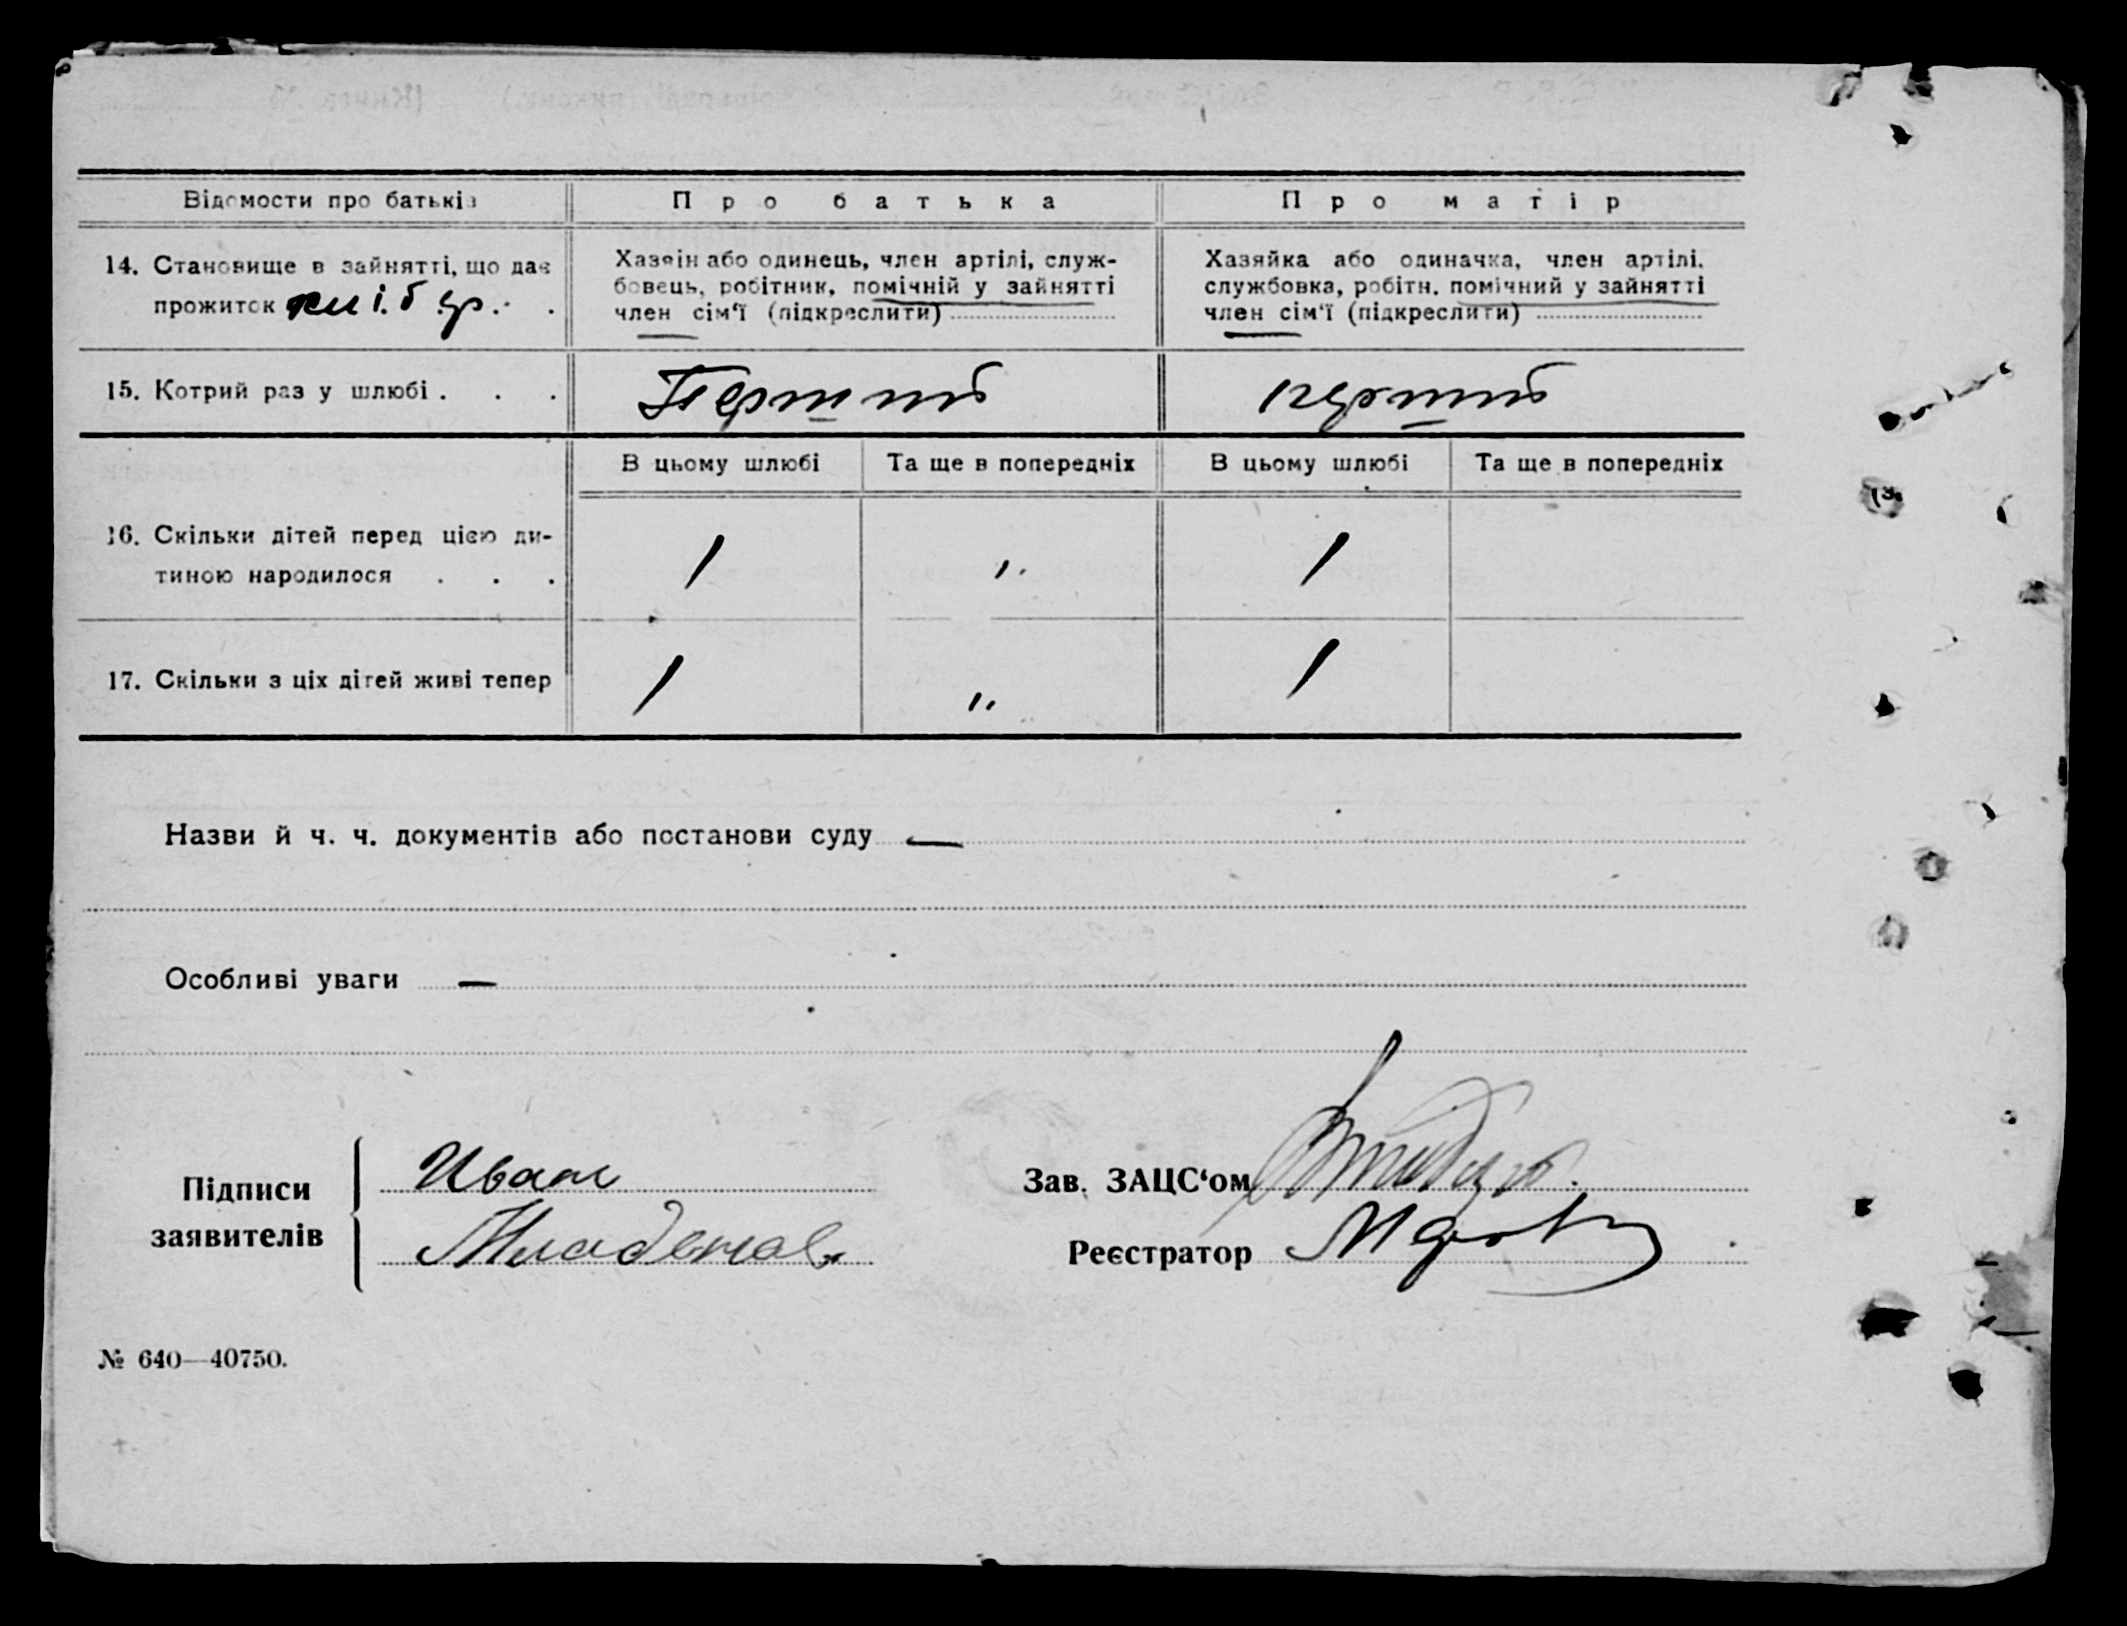 Відомости про батьків
Про батька
Про матір
14. Становище в зайнятті, що дає
прожиток
Хазяїн або одинець, член артілі, служ-
бовець, робітник, помічній у зайнятті
член сім'ї (підкреслити)
Хазяйка або одиначка, член артілі,
службовка, робітн. помічний у зайнятті
член сім'ї (підкреслити)
15. Котрий раз у шлюбі . . .
Перший
перший
В цьому шлюбі
Та ще в попередніх
В цьому шлюбі
Та ще в попередніх
16. Скільки дітей перед цією ди-
тиною народилося . . .
1
"
1
17. Скільки з ціх дітей живі тепер
1
"
1
Назви й ч. ч. документів або постанови суду —
Особливі уваги —
Підписи
заявителів
Иван
Младенов
Зав. ЗАЦС‘ом
Реєстратор
№ 640—40750.